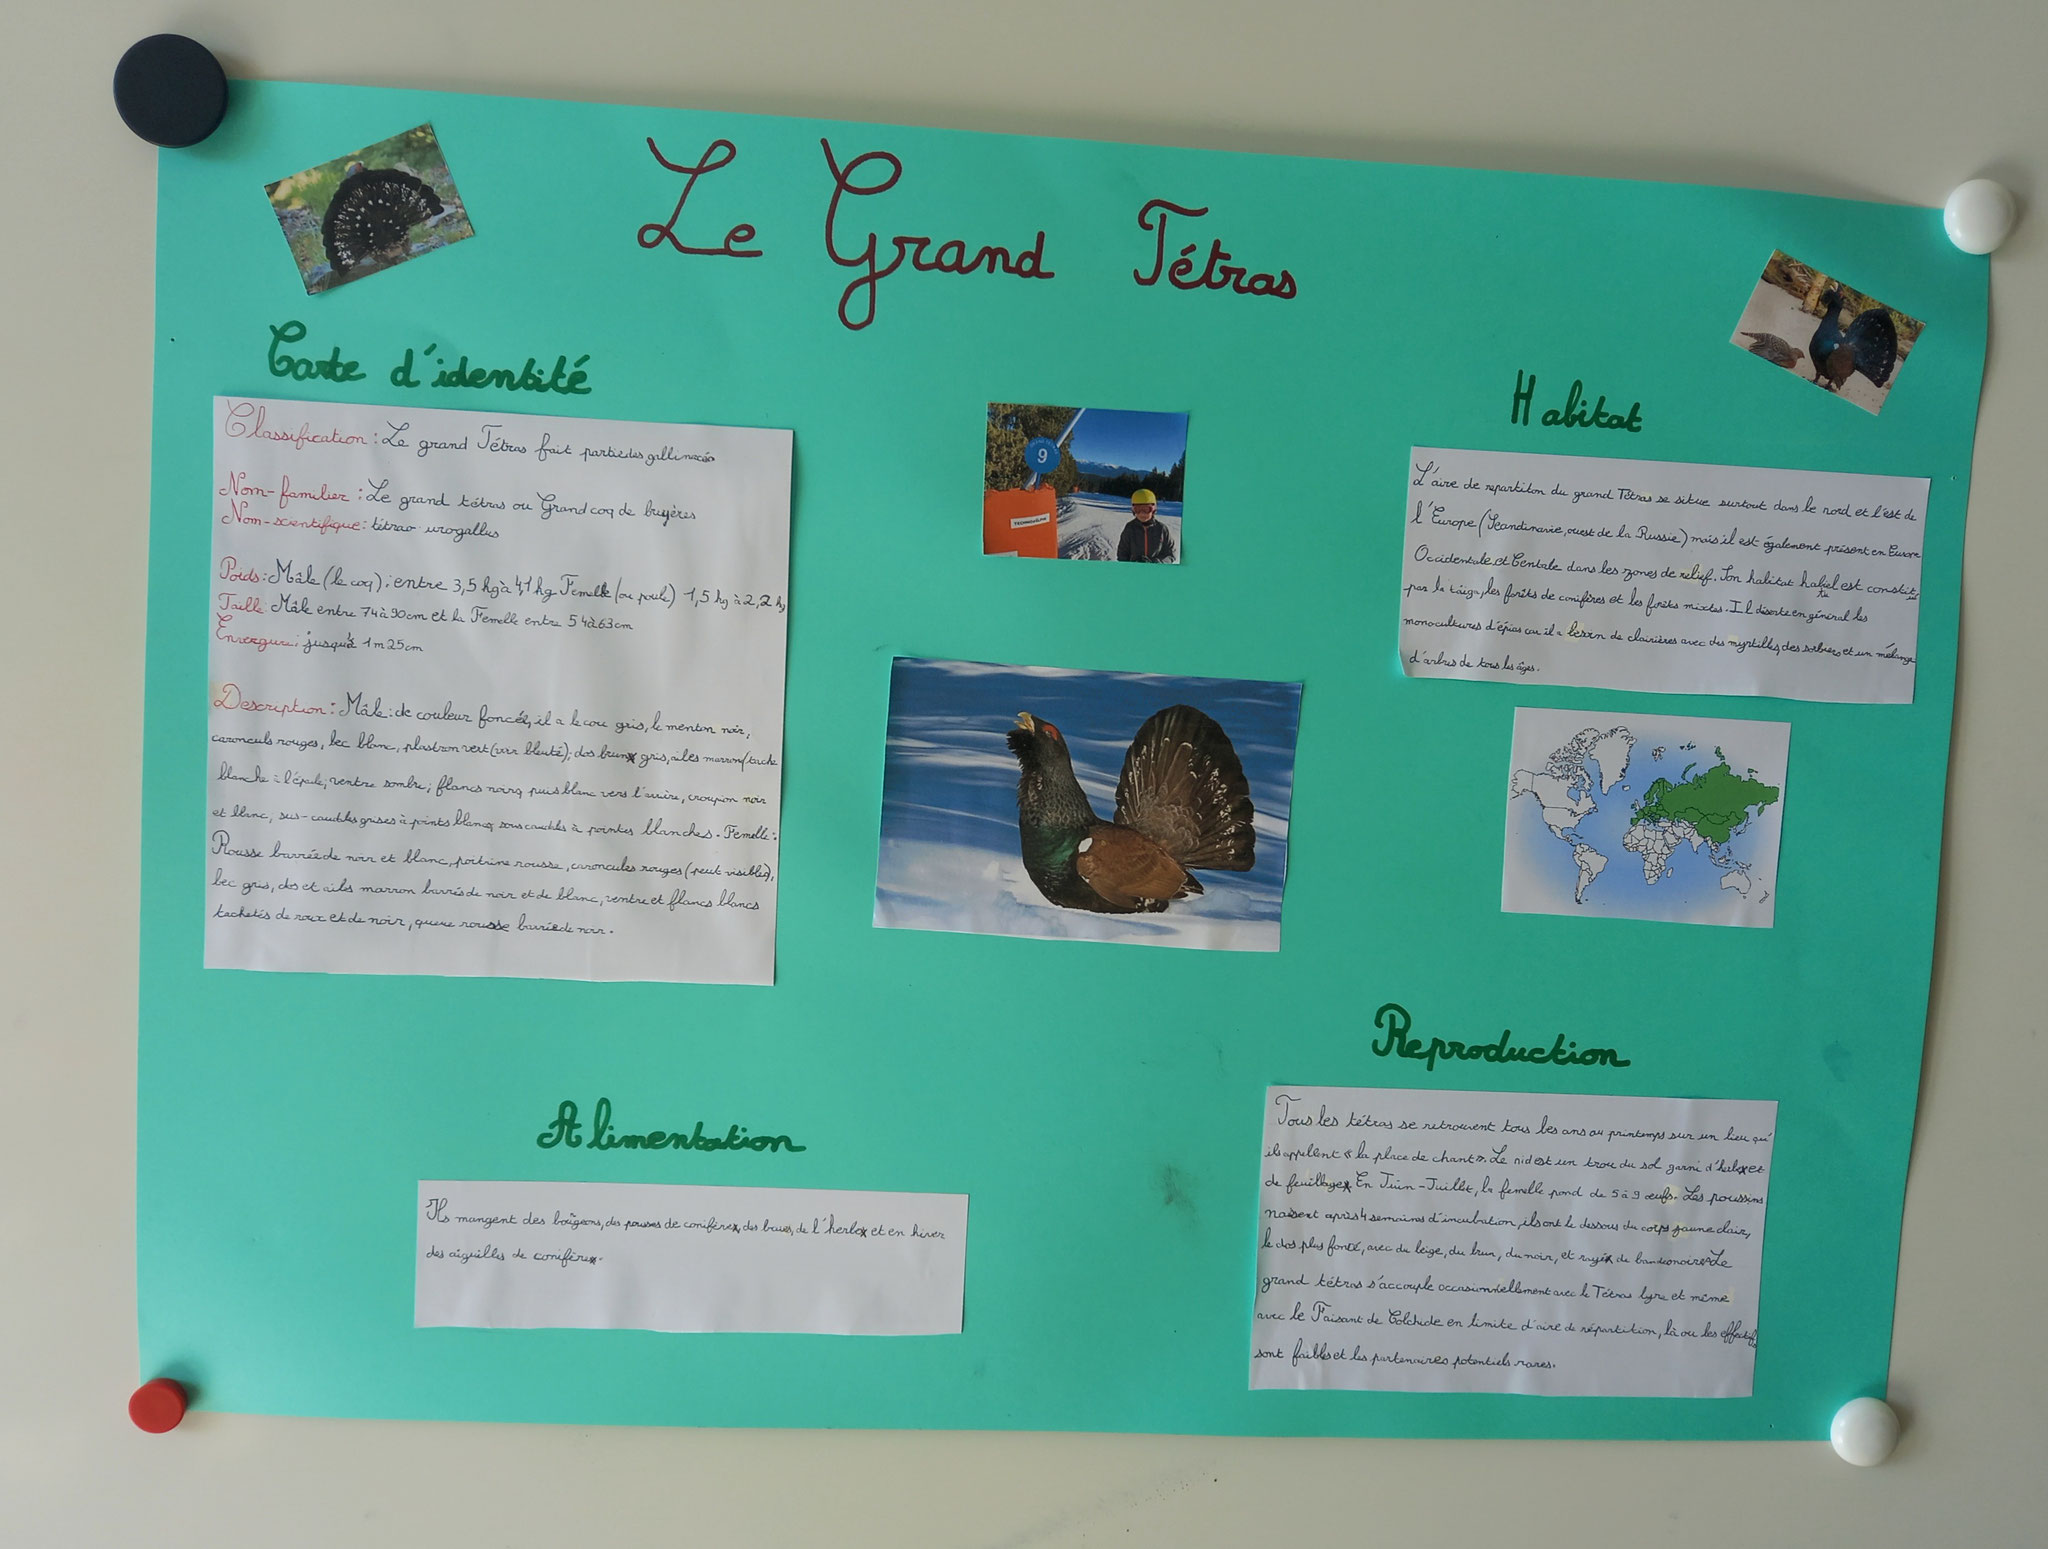 Le Grand Tétras
Carte d'identité
Classification : Le grand Tétras fait partie des gallinacés
Nom-familier : Le grand tétras ou Grand coq de bruyères
Nom-scientifique : tétrao urogallus
Poids : Mâle (le coq) : entre 3,5 kg à 4,1 kg Femelle (ou poule) 1,5 kg à 2,2 kg
Taille : Mâle entre 74 à 90 cm et la Femelle entre 54 à 63 cm
Envergure : jusqu'à 1 m 25 cm
Description : Mâle : de couleur foncé, il a le cou gris, le menton noir,
caroncules rouges, bec blanc, plastron vert (voir bleuté) ; dos brun gris, ailes marron (tache
blanche à l'épaule ; ventre sombre ; flancs noirs, puis blanc vers l'arrière, croupion noir
et blanc, sus-caudales grises à points blancs, sous caudales à pointes blanches. Femelle :
Rousse barrée de noir et blanc, poitrine rousse, caroncules rouges (peut visibles),
bec gris, dos et ailes marron barrés de noir et de blanc, ventre et flancs blancs
tachetés de roux et de noir, queue rousse barrée de noir.
9
TECHNOALPIN
Habitat
L'aire de repartiton du grand Tétras se situe surtout dans le nord et l'est de
l'Europe (Scandinavie, ouest de la Russie) mais il est également présent en Europe
Occidentale et Centale dans les zones de relief. Son habitat habituel est constitué
par la taïga, les forêts de conifères et les forêts mixtes. Il déserte en général les
monocultures d'épicéas car il a besoin de clairières avec des myrtilles, des sorbiers et un mélange
d'arbres de tous les âges.
Alimentation
Ils mangent des bourgeons, des pousses de conifère, des baies, de l'herbe et en hiver
des aiguilles de conifère.
Reproduction
Tous les tétras se retrouvent tous les ans au printemps sur un lieu qu'
ils appellent « la place de chant ». Le nid est un trou du sol garni d'herbe et
de feuillage. En Juin-Juillet, la femelle pond de 5 à 9 œufs. Les poussins
naissent après 4 semaines d'incubation, ils ont le dessous du corps jaune clair,
le dos plus foncé, avec du beige, du brun, du noir, et rayé de bande noire. Le
grand tétras s'accouple occasionnellement avec le Tétras lyre et même
avec le Faisant de Colchide en limite d'aire de répartition, là ou les effectifs
sont faibles et les partenaires potentiels rares.